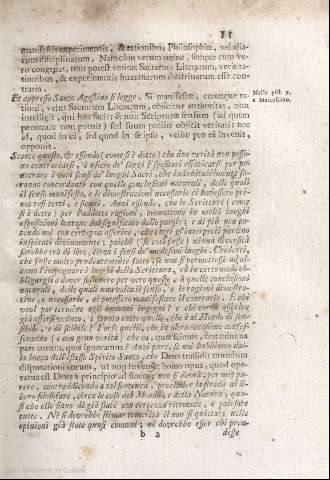 11
manifestis experimentis, & rationibus Philosophiæ, vel alia-
rum disciplinarum. Nam cùm verum omne, semper cum ve-
ro congruat, non potest veritas Sacrarum Literarum, veris ra-
tionibus, & experimentis humanarum doctrinarum esse con-
traria.
Et appresso Santo Agostino si legge. Si manifestæ, certæque ra-
tioni, velut Sacrarum Literarum, obijcitur authoritas, non
intelligit, qui hoc facit: & non Scripturæ sensum (ad quem
penetrare non potuit) sed suum potius obijcit veritati: nec
id, quod in ea, sed quod in se ipso, velut pro ea invenit,
opponit.
Nella pist. 7.
a Marcellino.
Stante questo, & essendo (come si è detto) che due verità non posso-
no contrariarsi, è officio de' saggi Espositori affaticarsi per pe-
netrare i veri sensi de' luoghi Sacri, che indubitabilmente sa-
ranno concordanti con quelle conclusioni naturali, delle quali
il senso manifesto, e le dimostrazioni necessarie ci havessero pri-
ma resi certi, e sicuri. Anzi essendo, che le Scritture (come
si è detto) per l'addotte ragioni, ammettono in molti luoghi
esposizioni lontane dal significato delle parole; e di più non po-
tendo noi con certezza asserire, che tutti gl'interpreti parlino
inspirati divinamente; poichè (se così fosse) niuna diversità
sarebbe trà di loro, circa i sensi de' medesimi luoghi. Crederei,
che fosse molto prudentemente fatto, se non si permettesse ad al-
cuno l'impegnare i luoghi della Scrittura, ed in certo modo ob-
bligargli a dover sostenere per vere queste, ò quelle conclusioni
naturali, delle quali una volta il senso, e le ragioni dimostra-
tive, e necessarie, ci potessero manifestare il contrario. E chi
vuol por termine agli humani ingegni? e chi vorrà asserire
già essersi veduto, e saputo tutto quello, che è al Mondo di sen-
sibile, e di scibile? Forse quelli, che in altra occasione confes-
saranno (e con gran verità) che ea, quæ scimus, sunt minima
pars eorum, quæ ignoramus? Anzi pure, se noi habbiamo dal-
la bocca dell'istesso Spirito Santo, che Deus tradidit mundum
disputationi eorum, ut non inveniat homo opus, quod ope-
ratus est Deus à principio ad finem; non si dovrà, per mio pa-
rere, contradicendo a tal sentenza, precluder la strada al li-
bero filosofare, circa le cose del Mondo, e della Natura, qua-
si che elle siano di già state con certezza ritrovate, e palesate
tutte. Nè si dovrebbe stimar temerità il non si quietar, nelle
opinioni già state quasi comuni; nè dovrebbe esser chi pren-
b 2
desse